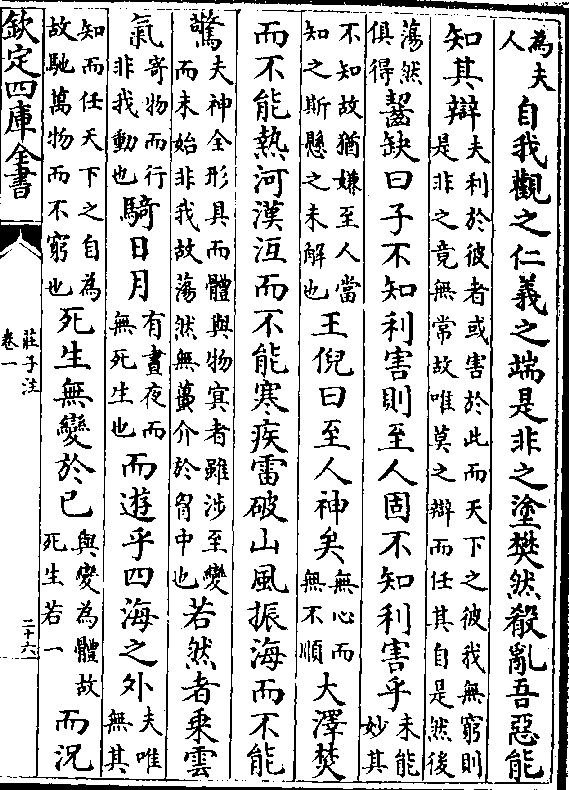 為夫人自我觀之仁義之端是非之塗樊然殽亂吾惡能
知其辯夫利於彼者或害於此而天下之彼我無窮則是非之竟無常故唯莫之辯而任其自是然後
蕩然俱得齧缺曰子不知利害則至人固不知利害乎未能妙其
不知故猶嫌至人當知之斯懸之未解也王倪曰至人神矣無心而無不順大澤焚
而不能熱河漢沍而不能寒疾雷破山風振海而不能
驚夫神全形具而體與物冥者雖涉至變而未始非我故蕩然無蠆介於胷中也若然者乘雲
氣寄物而行非我動也騎日月有晝夜而無死生也而遊乎四海之外夫唯無其
知而任天下之自為故馳萬物而不窮也死生無變於己與變為體故死生若一而況
欽定四庫全書
莊子注
卷一
二十六